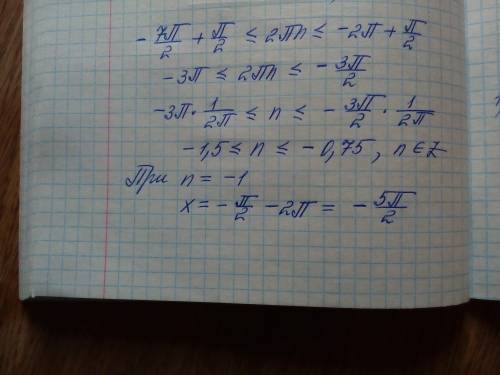 -7π/2 + π/2 ≤ 2πn ≤ -2π + π/2
-3π ≤ 2πn ≤ -3π/2
-3π · 1/2π ≤ n ≤ -3π/2 · 1/2π
-1,5 ≤ n ≤ -0,75, n ∈ Z
При n = -1
x = -π/2 - 2π = -5π/2